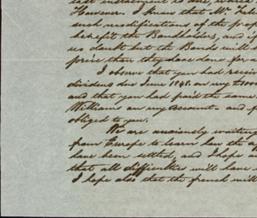 However. I think that Mr
such modifications of the prop
benefit the Bondholders, and if
us doubt but the Bonds will
price than they have done for
I observe that you had recei
dividend due June 1841.
and that you had paid the
Williams on my account. and
obliged to you.
We are anxiously waiting
from Europe to learn how the
have been settled, and I hope
that all difficulties will have
I hope also that the french will